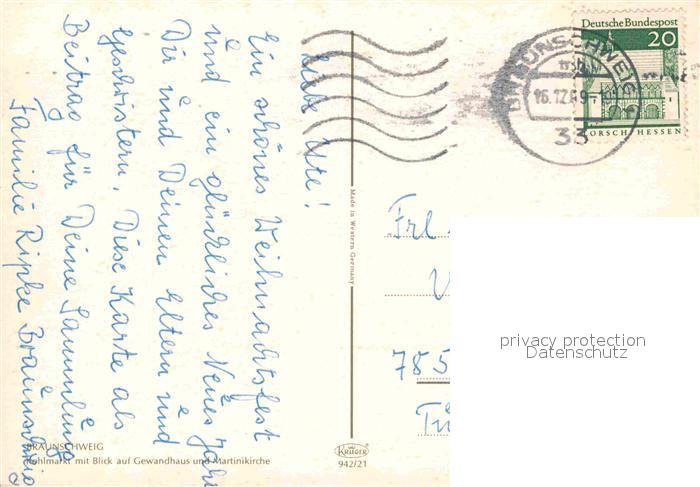 Liebe Ute!
Ein schönes Weihnachtsfest
und ein glückliches Neues Jahr
Dir und Deinen Eltern und
Geschwistern. Diese Karte als
Beitrag für Deine Sammlung
Familie Ripke Braunschweig
Deutsche Bundespost
20
LORSCH/HESSEN
BRAUNSCHWEIG
33
Made in Western Germany
Frl
785
privacy protection
Datenschutz
BRAUNSCHWEIG
Kohlmarkt mit Blick auf Gewandhaus und Martinikirche
KRÜGER
942/21